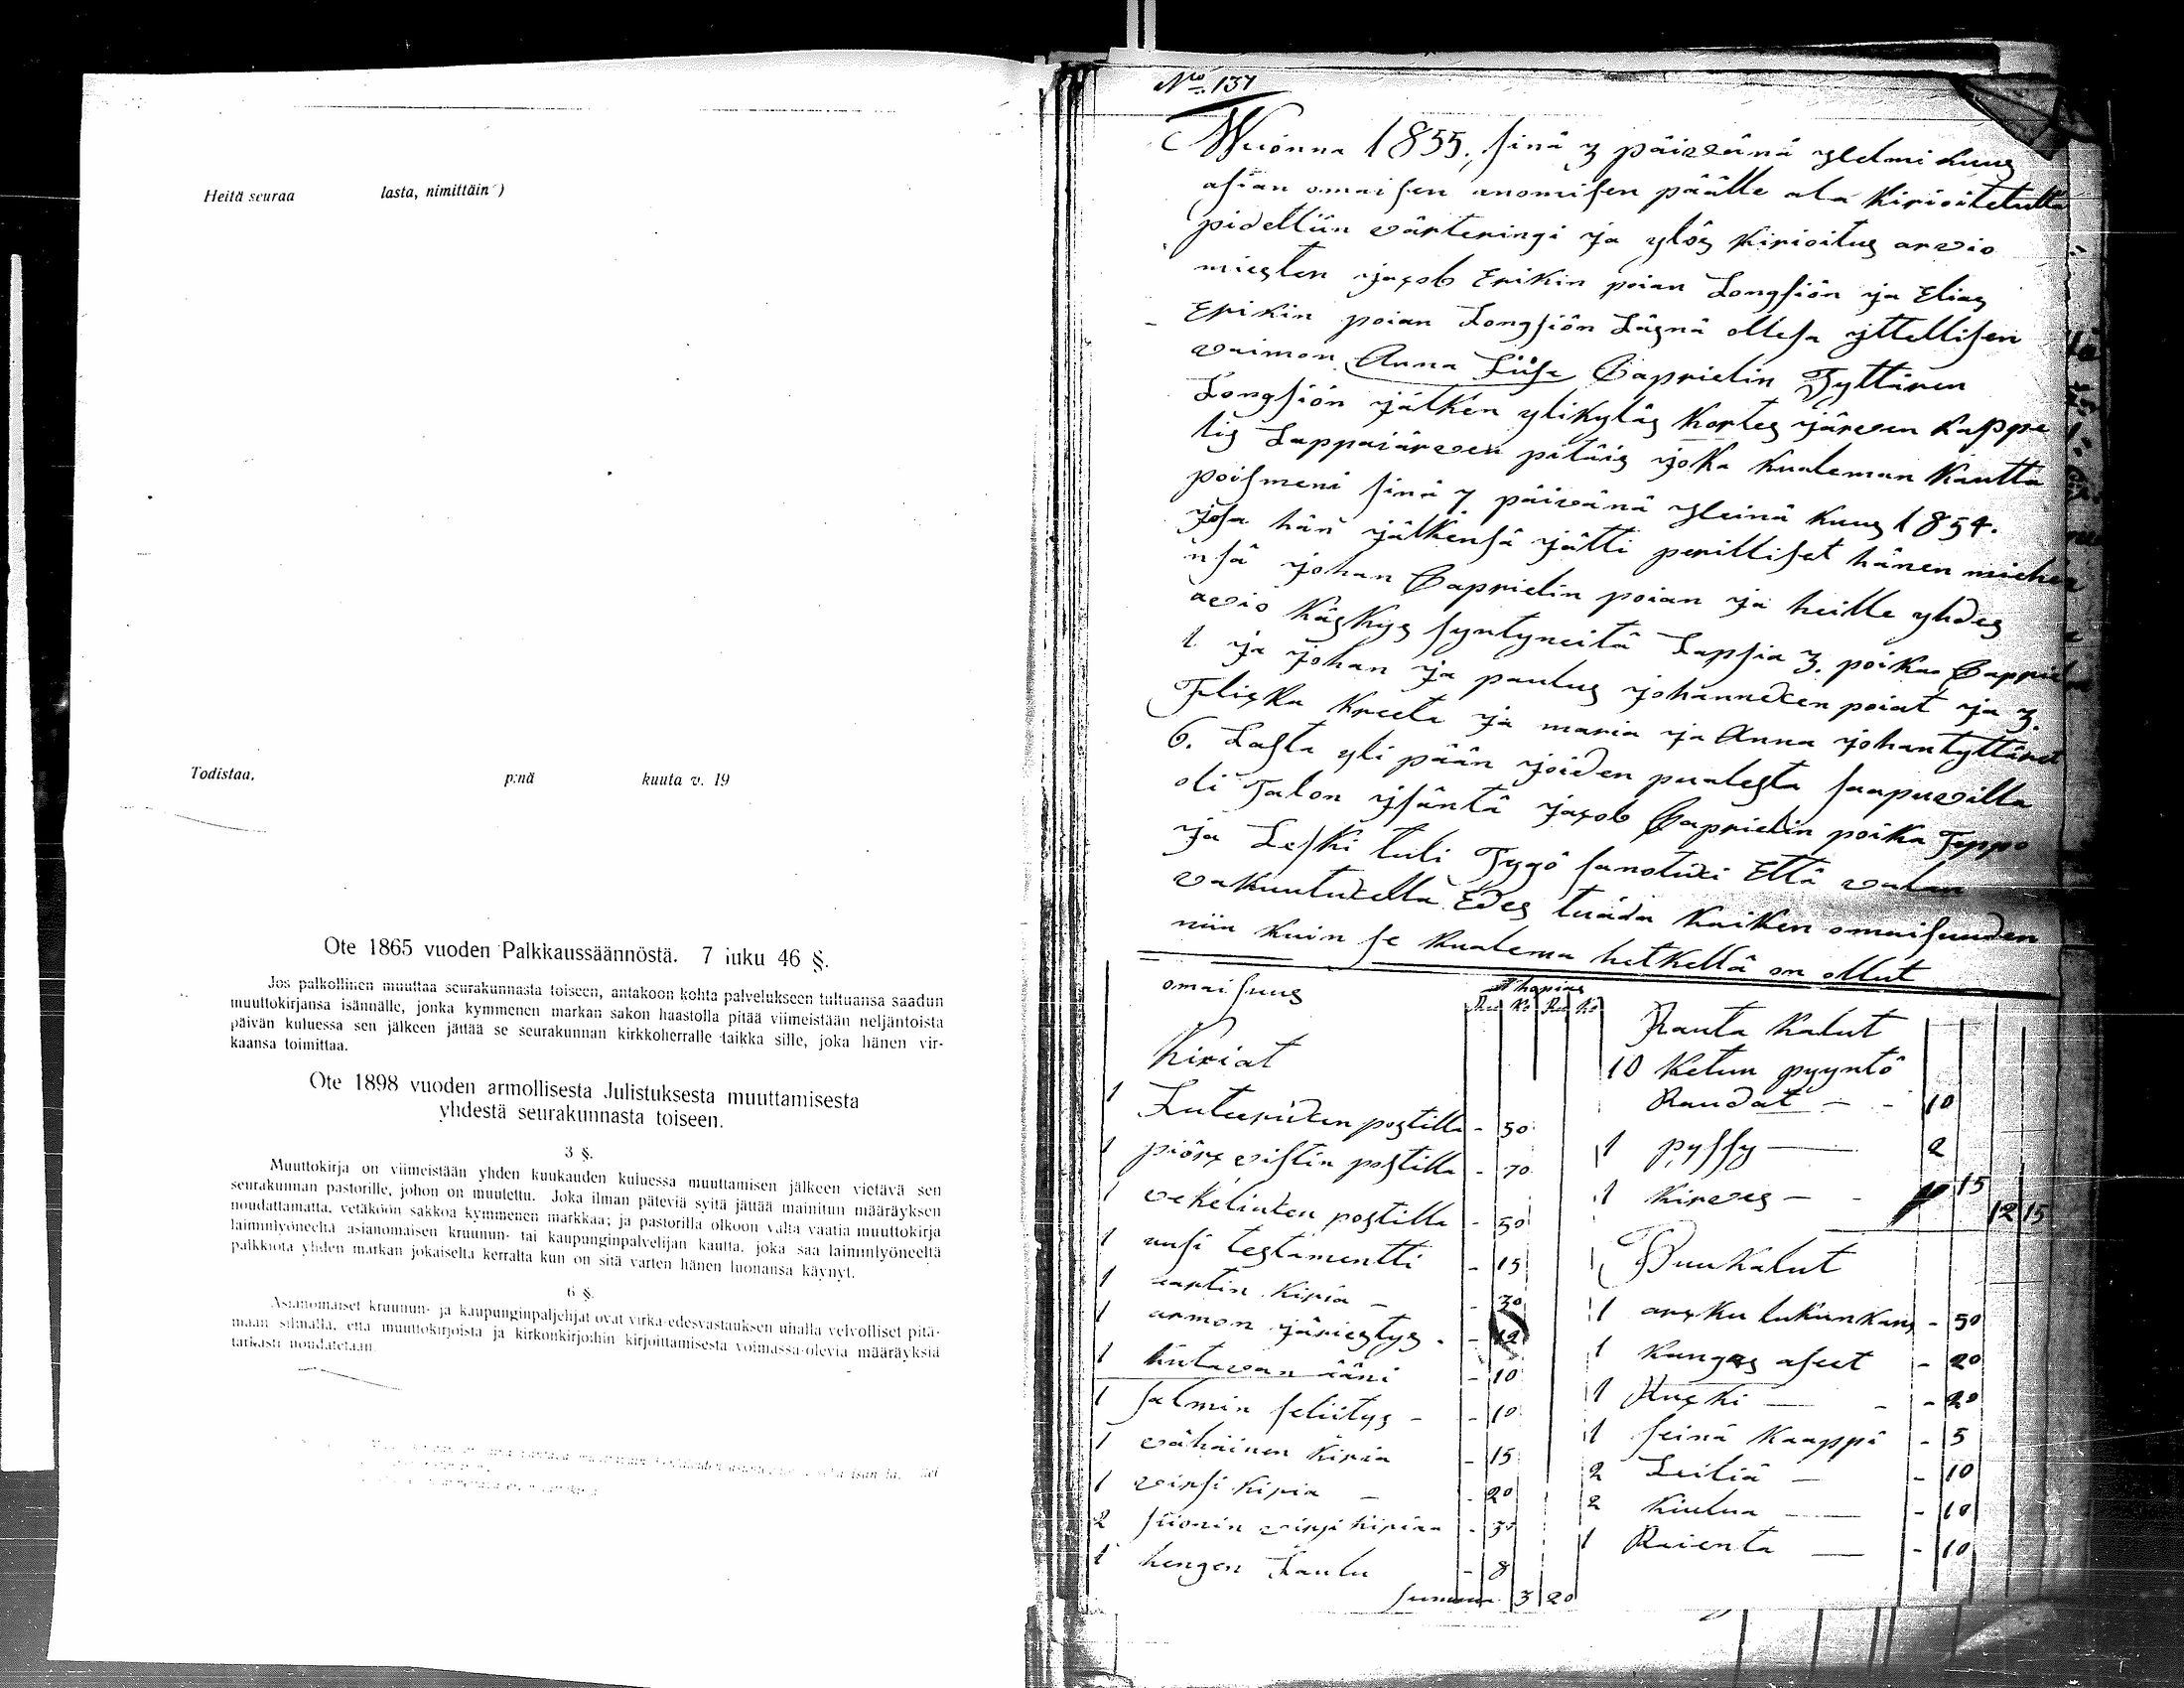 Heitä seuraa lasta, nimittäin*)
Todistaa, p:nä kuuta v. 19
Ote 1865 vuoden Palkkaussäännöstä. 7 luku 46 §.
Jos palkollinen muuttaa seurakunnasta toiseen, antakoon kohta palvelukseen tultuansa saadun
muuttokirjansa isännälle, jonka kymmenen markan sakon haastolla pitää viimeistään neljäntoista
päivän kuluessa sen jälkeen jättää se seurakunnan kirkkoherralle taikka sille, joka hänen vir-
kaansa toimittaa.
Ote 1898 vuoden armollisesta Julistuksesta muuttamisesta
yhdestä seurakunnasta toiseen.
3 §.
Muuttokirja on viimeistään yhden kuukauden kuluessa muuttamisen jälkeen vietävä sen
seurakunnan pastorille, johon on muutettu. Joka ilman päteviä syitä jättää mainitun määräyksen
noudattamatta, vetäköön sakkoa kymmenen markkaa; ja pastorilla olkoon valta vaatia muuttokirja
laiminlyöneeltä asianomaisen kruunun- tai kaupunginpalvelijan kautta, joka saa laiminlyöneeltä
palkkiota yhden markan jokaiselta kerralta kun on sitä varten hänen luonansa käynyt.
6 §.
Asianomaiset kruunun- ja kaupunginpalvelijat ovat virka-edesvastauksen uhalla velvolliset pitä-
mään silmällä, että muuttokirjoista ja kirkonkirjoihin kirjoittamisesta voimassa olevia määräyksiä
tarkasti noudatetaan.
No. 137
Wuonna 1855, sinä 3 päiwänä Helmi kuus
asian omaisen anomisen päälle ala kirioitetulta
pidettiin värteringi ja ylös kirioitus arvio
miesten jacob Erikin poian Longsiön ja Elias
Erikin poian Longsiön Läsnä ollesa ittellisen
vaimon Anna Liisa Caprielin Tyttären
Longsiön jälken ylikyläs kortes järven kappe
lis Lappaiärven pitäis joka kualeman kautta
poismeni sinä 7 päivänä Heinä kuus 1854.
josa hän jälkensä jätti perilliset hänen miehe
nsä johan Caprielin poian ja heille yhdes
avio käskys syntyneitä Lapsia 3. poikaa Capriel
1 ja johan ja paulus johanneksen poiat ja 3.
Fliska kreeta ja maria ja Anna johantyttäret
6. Lasta yli pään joiden pualesta saapuvilla
oli Talon isäntä jacob Caprielin poika Teppo
ja Leski tuli Tygö sanotuxi Että valan
vakuutuxella Edes tuada kaiken omaisuuden
niin kuin se kualema hetkellä on ollut
omaisuus Hopias
Ru Ko Ru Ko
kiriat
1 Luteeruxen postilla - 50
1 piörx vistin postilla - 70
1 vekelinten postilla - 50
1 uusi testamentti - 15
1 aartin kiria - - 30
1 armon järiestys - - 12
1 huutavan ääni - 10
1 salmin selitys - - 10
1 vähäinen kiria - 15
1 virsi kiria - - 20
2 siionin virsi kiriaa - 30
1 hengen Laulu - 8
summa 3 20
Rauta kalut
10 ketun pyyntö
Raudat - - 10
1 pyssy - 2
1 kirves - - 15
12 15
Puukalut
1 arkku lukunkans - 50
1 kangas aseet - 20
1 Hurki - - 20
1 seinä kaappi - 5
2 Leiliä - - 10
2 kiulua - - 10
1 Raienta - - 10